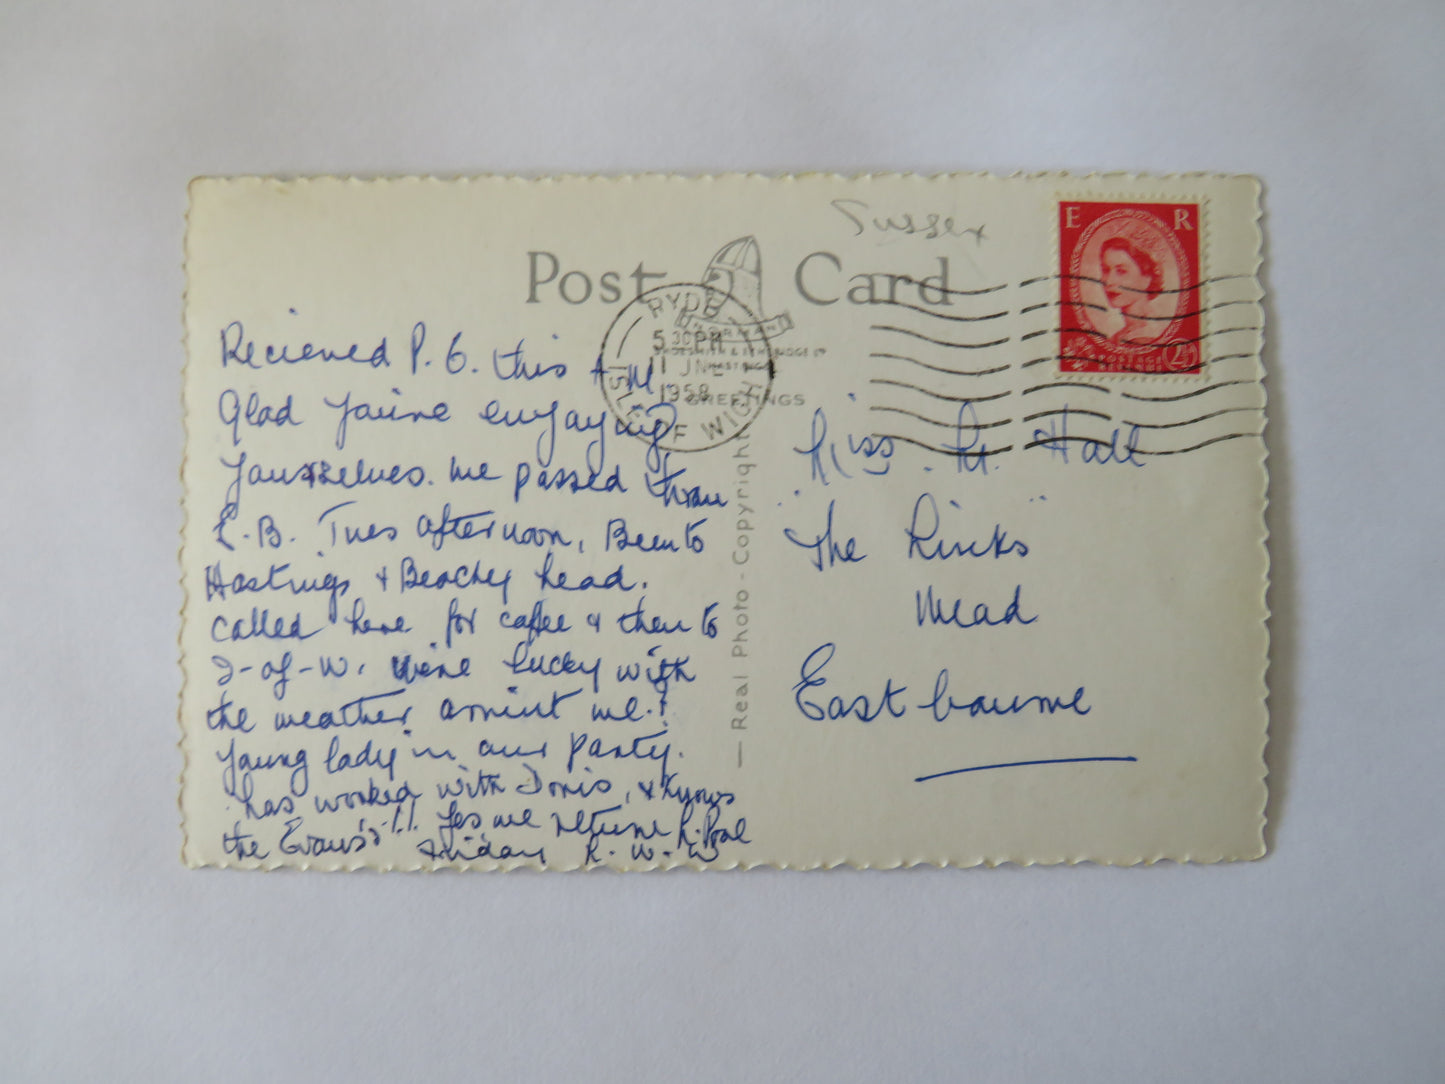 Sussex
Post Card
E R
POSTAGE
REVENUE
2½
NORMAN
SHOESMITH & ETHERIDGE LTD
HASTINGS
GREETINGS
RYDE
5.30 PM
11 JNE
1958
ISLE OF WIGHT
— Real Photo - Copyright
Recieved P.C. this A.M.
Glad you're enjoying
yourselves. We passed throu
E.B. Tues afternoon, Been to
Hastings & Beachy head.
called here for coffee & then to
I-of-W. We're lucky with
the weather arn't we.?
Young lady in our party.
has worked with Doris, & knows
the Evans's!! Yes we return
Friday R. W. W
Miss. M. Hall
"The Rinks"
Mead
Eastbourne